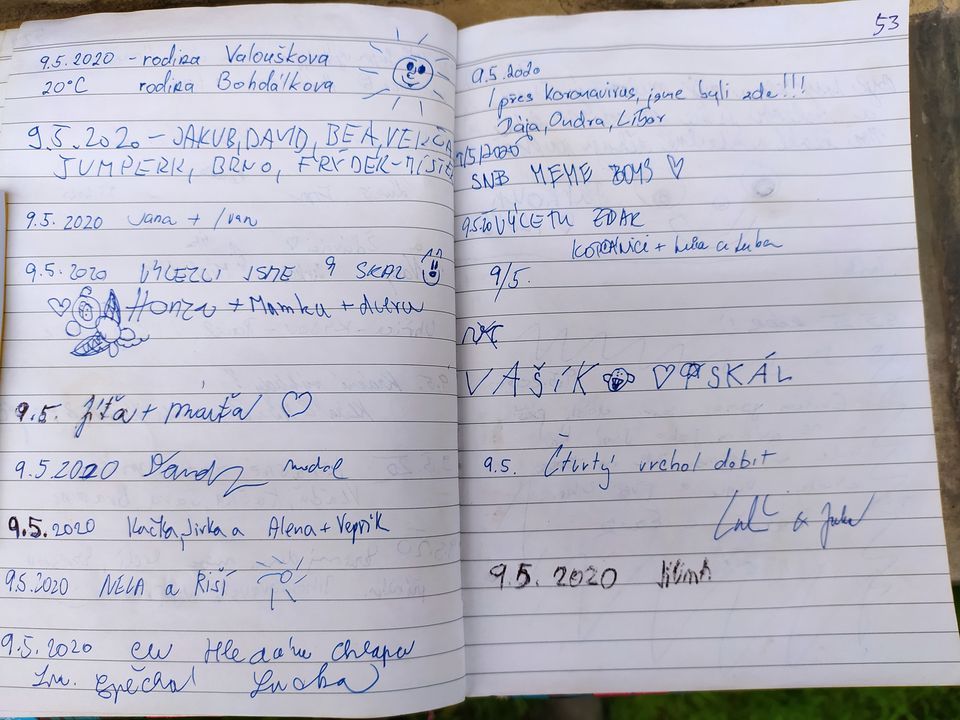 9.5.2020 - rodina Valouškova
20°C rodina Bohdálkova
9.5.2020 - JAKUB, DAVID, BEA,
ŠUMPERK, BRNO, FRÝDEK-MÍSTEK
9.5.2020 Jana + Ivan
9.5.2020 VYLEZLI JSME SKAL
Honza + Mamka + dcera
9.5. Jíťa + Márťa ♡
9.5.2020
9.5.2020 Kačka, Jirka a Alena + Vepřík
9.5.2020 NELA a Riší
9.5.2020 Hledáme chlapa
Zn. spěchá! Lucka
53
9.5.2020
I přes koronavirus, jsme byli zde!!!
Jája, Ondra, Libor
9/5/2020
SNB MEME BOYS ♡
9.5.20 VÝLETU ZDAR
9/5.
VAŠÍK ♡ PASKÁL
9.5. Čtvrtý vrchol dobit
9.5.2020